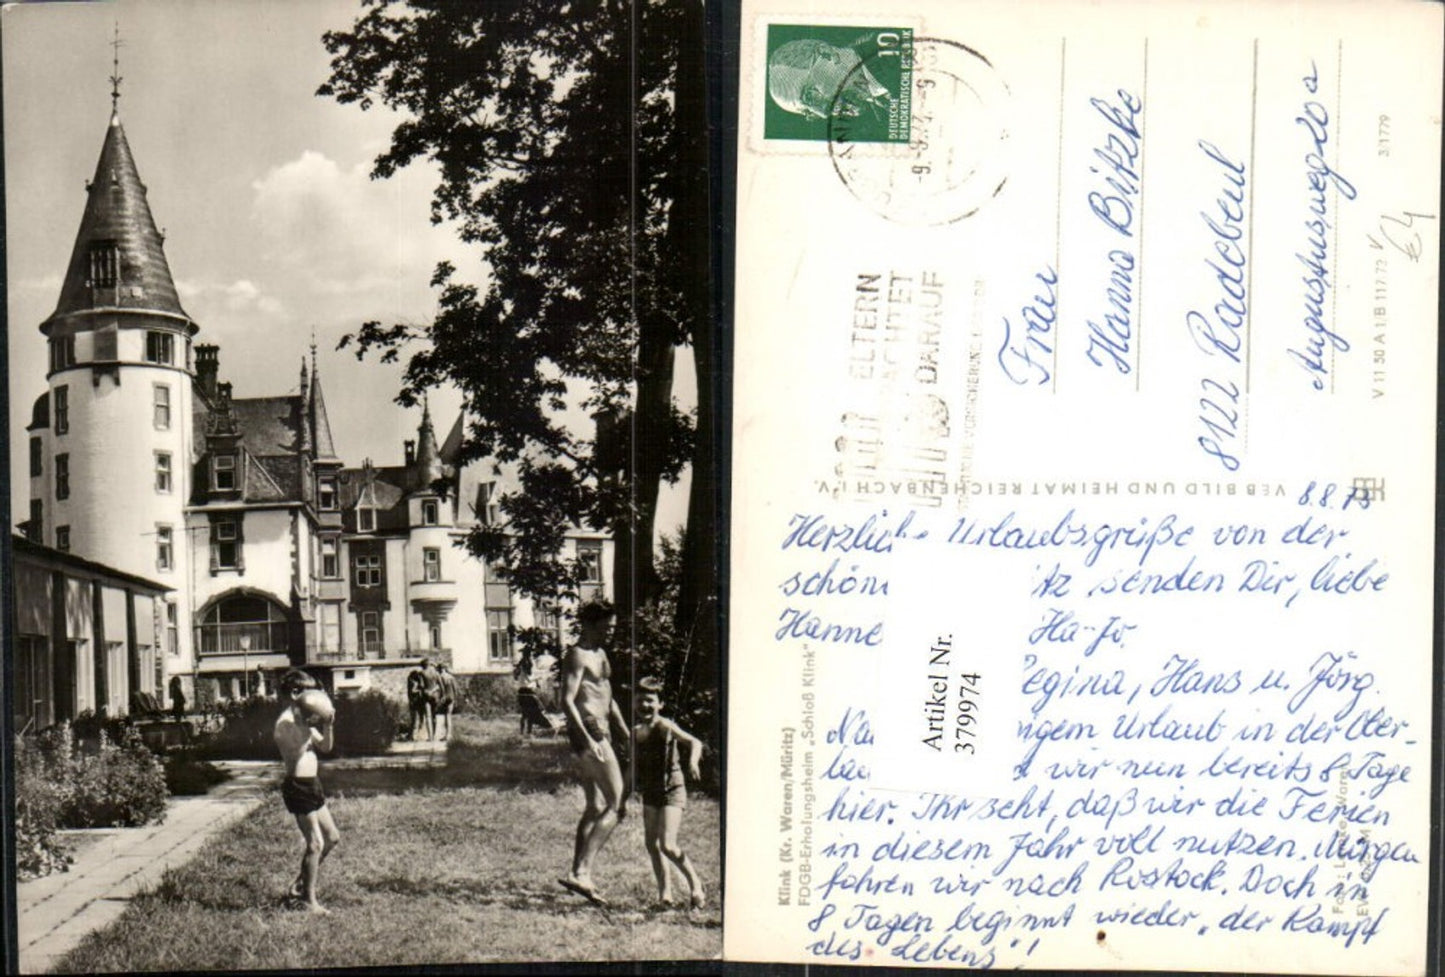 10
DEUTSCHE
DEMOKRATISCHE REPUBLIK
-9.-8.73.-9
ELTERN
ACHTET
DARAUF
Frau
Hanna Bitzke
8122 Radebeul
Augustusweg 20 a
3/1779
€4
V 11 50 A 1 B 117.73 V
VEB BILD UND HEIMAT REICHENBACH I. V.
8.8.73
Herzliche Urlaubsgrüße von der
schön tz senden Dir, liebe
Hanne Ha-Jo.
Regina, Hans u. Jörg.
Na ngem Urlaub in der Ober-
lau wir nun bereits 8 Tage
hier. Ihr seht, daß wir die Ferien
in diesem Jahr voll nutzen. Morgen
fahren wir nach Rostock. Doch in
8 Tagen beginnt wieder „der Kampf
des Lebens"!
Artikel Nr.
379974
Klink (Kr. Waren/Müritz)
FDGB-Erholungsheim „Schloß Klink"